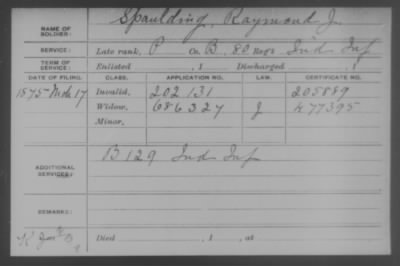 NAME OF SOLDIER: Spaulding, Raymond J.
SERVICE: Late rank, P Co. B, 80 Reg't Ind Inf
TERM OF SERVICE: Enlisted , 1 Discharged , 1
DATE OF FILING. CLASS. APPLICATION NO. LAW. CERTIFICATE NO.
1875 Mch 17 Invalid, 202131 205889
Widow, 686327 J 477395
Minor,
ADDITIONAL SERVICES: B 129 Ind Inf
REMARKS:
Died , 1 , at